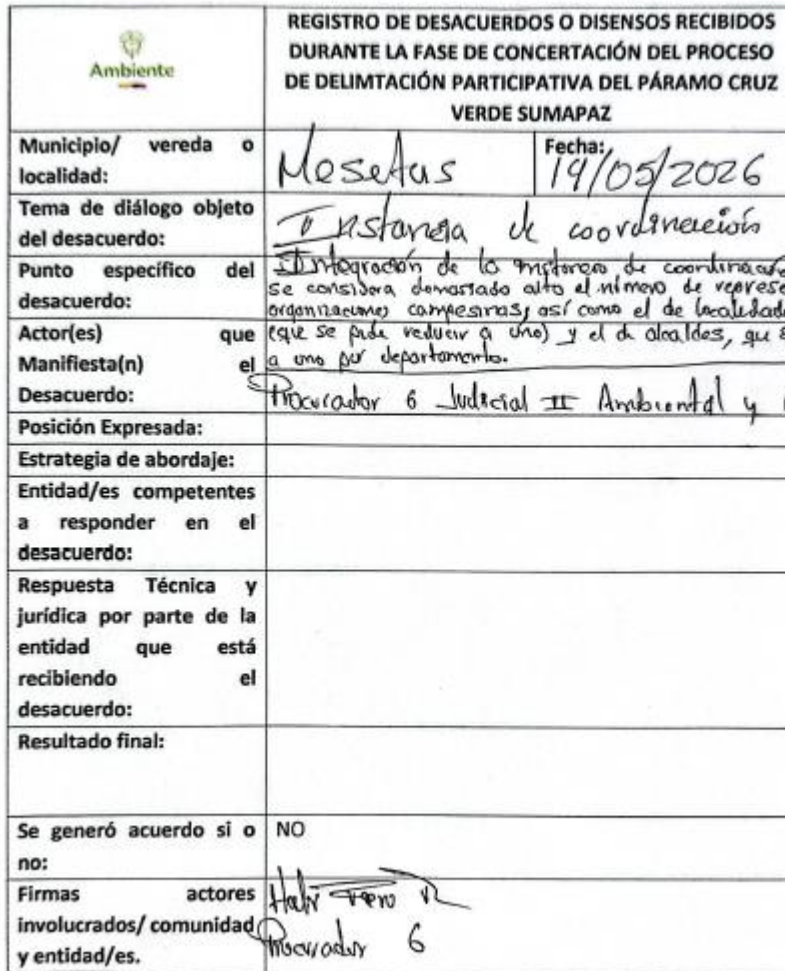 Ambiente
REGISTRO DE DESACUERDOS O DISENSOS RECIBIDOS
DURANTE LA FASE DE CONCERTACIÓN DEL PROCESO
DE DELIMTACIÓN PARTICIPATIVA DEL PÁRAMO CRUZ
VERDE SUMAPAZ
Municipio/ vereda o
localidad:
Mesetas
Fecha:
19/05/2026
Tema de diálogo objeto
del desacuerdo:
Instancia de coordinación
Punto específico del
desacuerdo:
Integración de la instancia de coordinación
se considera demasiado alto el número de represe
organizaciones campesinas, así como el de localidade
Actor(es) que
Manifiesta(n) el
Desacuerdo:
(que se pude reducir a uno) y el de alcaldes, que
a uno por departamento.
Procurador 6 Judicial II Ambiental y
Posición Expresada:
Estrategia de abordaje:
Entidad/es competentes
a responder en el
desacuerdo:
Respuesta Técnica y
jurídica por parte de la
entidad que está
recibiendo el
desacuerdo:
Resultado final:
Se generó acuerdo si o
no:
NO
Firmas actores
involucrados/ comunidad
y entidad/es.
Procurador 6